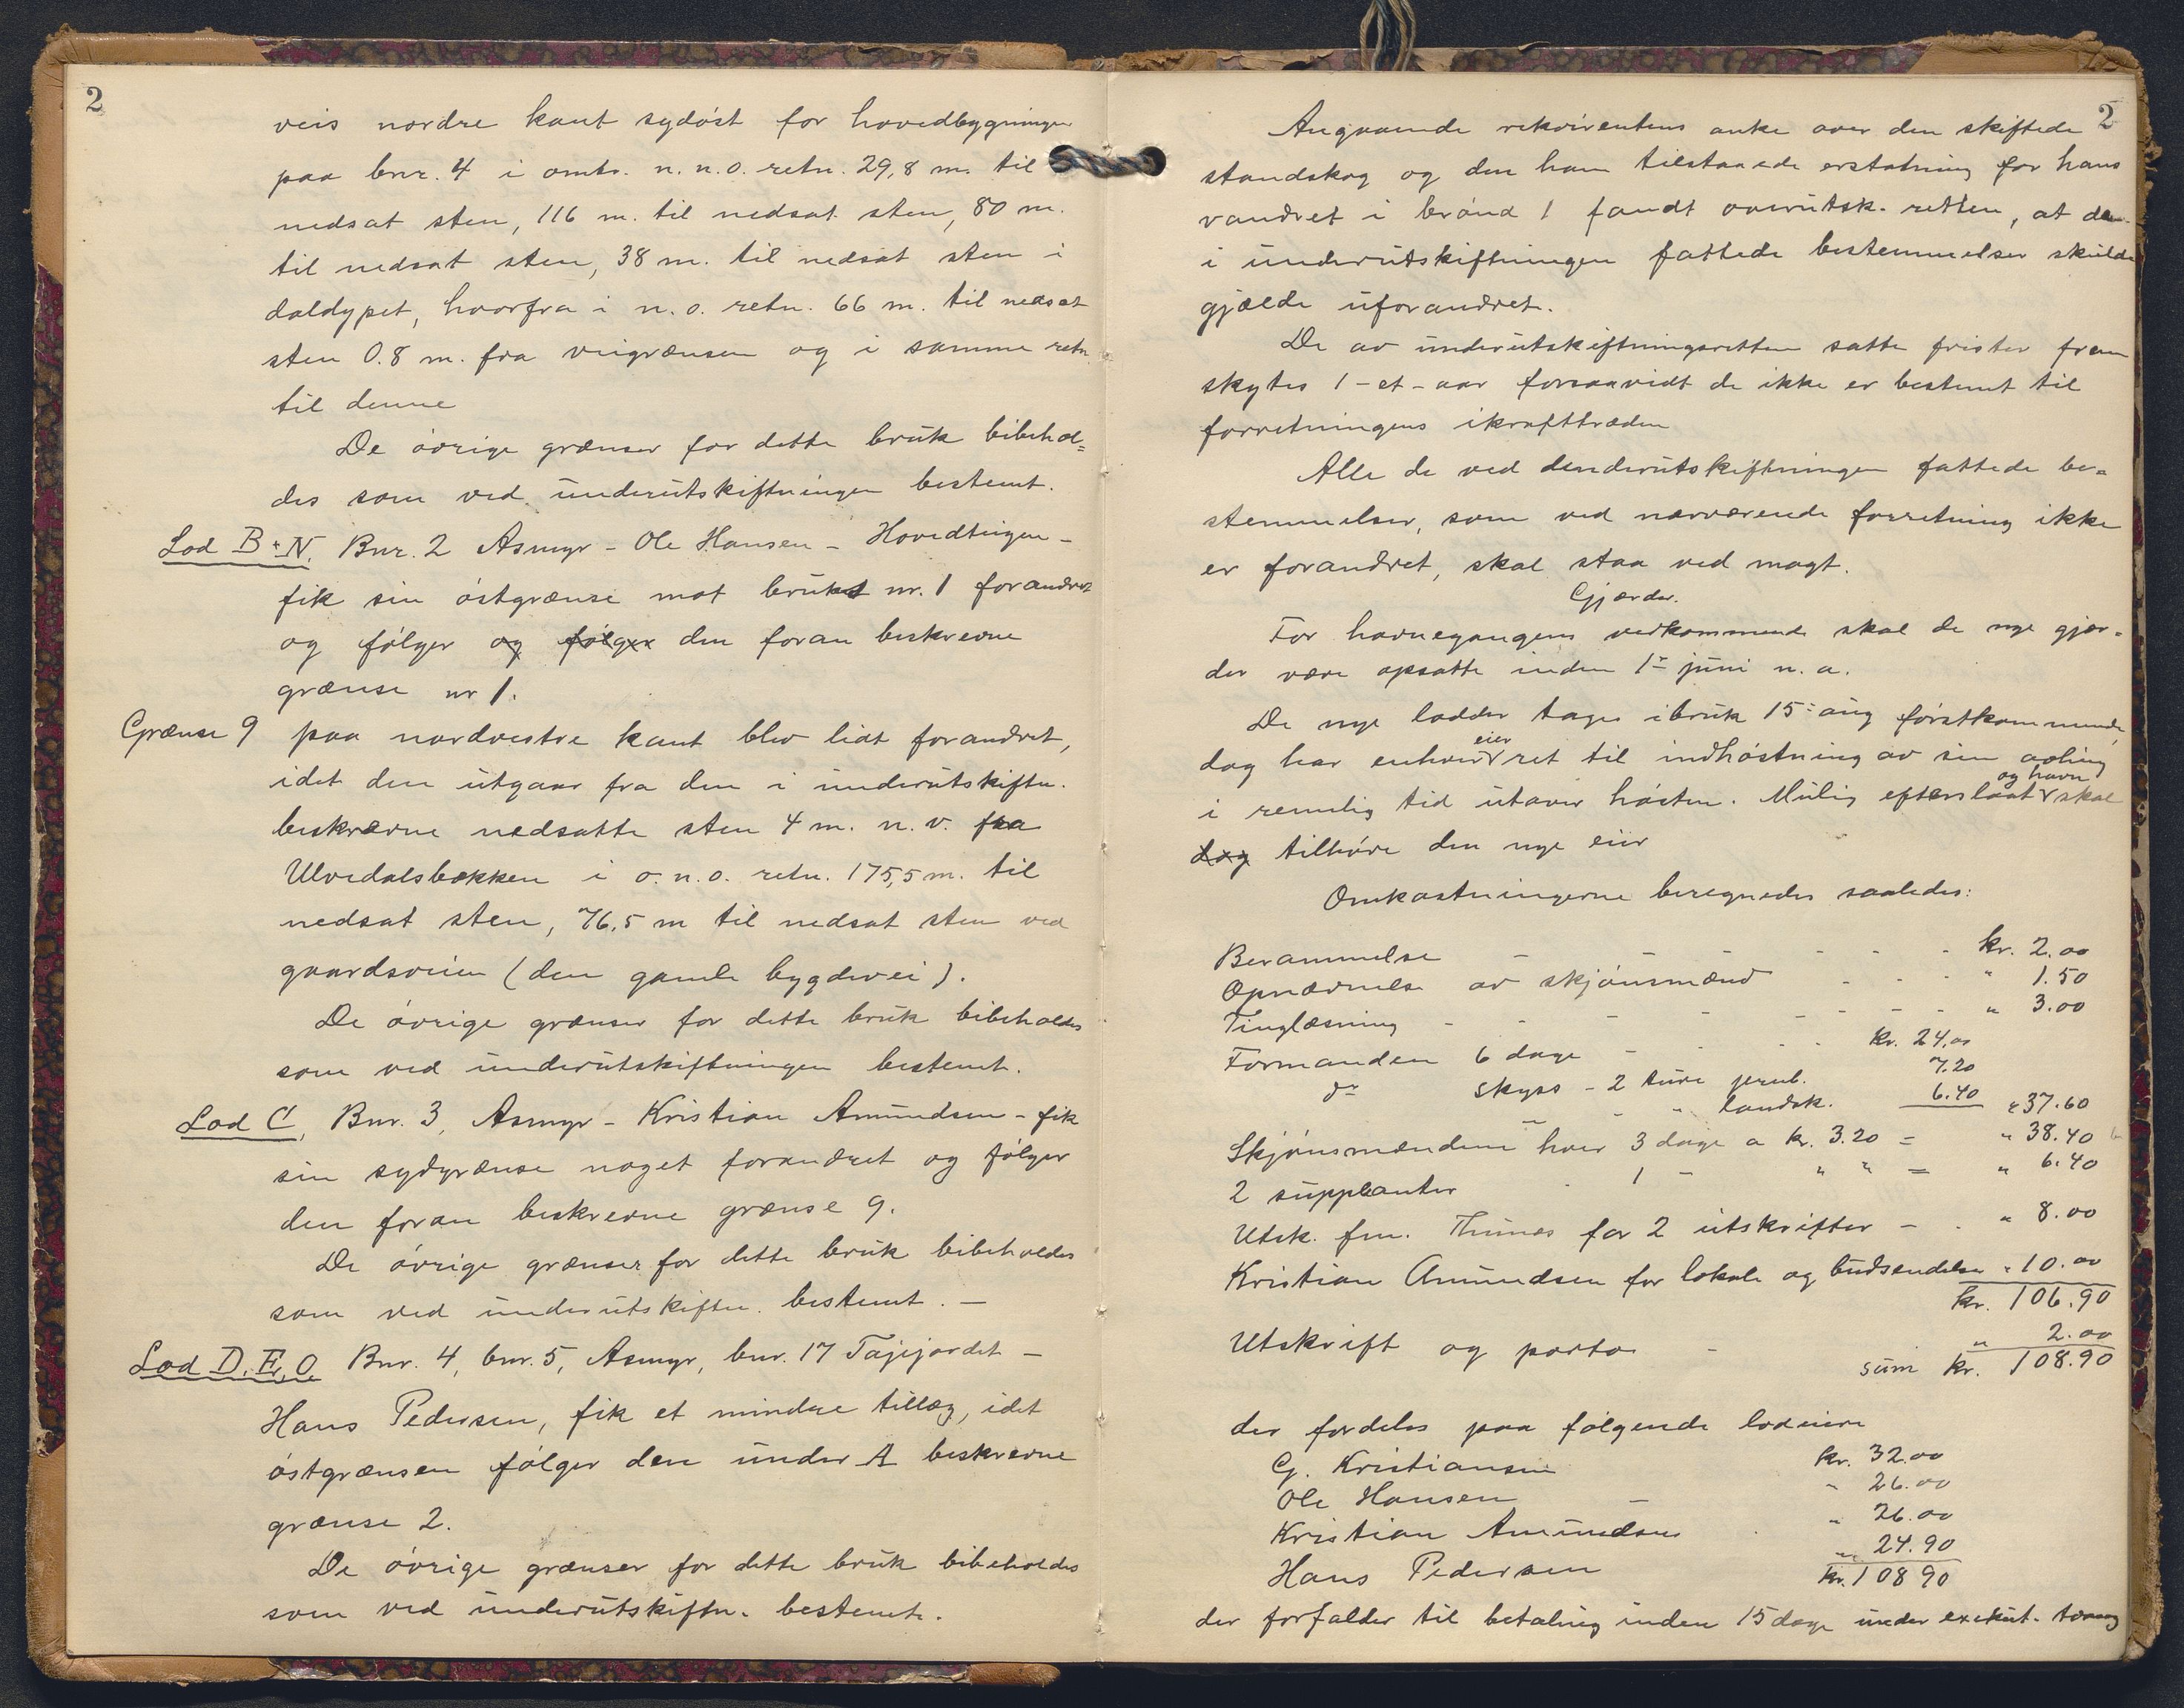 2
veis nordre kant sydøst for hovedbygningen
paa bnr. 4 i omtr. n. n. o. retn. 29,8 m. til
nedsat sten, 116 m. til nedsat sten, 80 m.
til nedsat sten, 38 m. til nedsat sten i
daldypet, hvorfra i n. o. retn. 66 m. til nedsat
sten 0.8 m. fra veigrænsen og i samme retn
til denne
De øvrige grænser for dette bruk bibehol=
des som ved underutskiftningen bestemt.
Lod B + N. Bnr. 2 Asmyr - Ole Hansen - Hovedtingen -
fik sin østgrænse mot bruket nr. 1 forandret
og følger og følger den foran beskrevne
grænse nr 1.
Grænse 9 paa nordvestre kant blev lidt forandret,
idet den utgaar fra den i underutskiftn.
beskrevne nedsatte sten 4 m. n. v. fra
Ulvedalsbækken i o. n. o. retn. 175,5 m. til
nedsat sten, 76,5 m til nedsat sten ved
gaardsveien (den gamle bygdevei).
De øvrige grænser for dette bruk bibeholdes
som ved underutskiftningen bestemt.
Lod C, Bnr. 3, Asmyr - Kristian Amundsen - fik
sin sydgrænse noget forandret og følger
den foran beskrevne grænse 9.
De øvrige grænser for dette bruk bibeholdes
som ved underutskiftn. bestemt. -
Lod D. E, O Bnr. 4, bnr. 5, Asmyr, bnr. 17 Tajejordet -
Hans Pedersen, fik et mindre tillæg, idet
østgrænsen følger den under A beskrevne
grænse 2.
De øvrige grænser for dette bruk bibeholdes
som ved underutskiftn. bestemt.
2
Angaaende rekvirentens anke over den skiftede
standskog og den ham tilstaaede erstatning for hans
vandret i brønd 1 fandt overutsk. retten, at den
i underutskiftningen fattede bestemmelser skulde
gjælde uforandret.
De av underutskiftningsretten satte frister frem
skytes 1 - et - aar forsaavidt de ikke er bestemt til
forretningens ikrafttræden
Alle de ved denderutskiftningen fattede be=
stemmelser, som ved nærværende forretning ikke
er forandret, skal staa ved magt.
Gjærder.
For havnegangens vedkommende skal de nye gjær=
der være opsatte inden 1ste juni n. a.
De nye lodder tages i bruk 15: aug førstkommende,
dog har enhver eier ret til indhøstning av sin avling
i rimelig tid utover høsten. Mulig efterslaat og havn skal
dog tilhøre den nye eier
Omkostningerne beregnedes saaledes:
Berammelse - - - - - - kr. 2.00
Opnævnelse av skjønsmænd - - - " 1.50
Tinglæsning - - - - - - - - " 3.00
Formanden 6 dage - - - kr. 24,00
do skyss - 2 ture jernb. 7.20
- - landsk. 6.40 " 37.60
Skjønsmændene hver 3 dage a kr. 3.20 = " 38.40
2 supplanter - 1 - " " = " 6.40
Utsk. fm. Thunes for 2 utskrifter - - " 8.00
Kristian Amundsen for lokale og budsendelse " 10.00
kr. 106.90
Utskrift og porto - " 2.00
sum kr. 108.90
der fordeles paa følgende lodeiere
G. Kristiansen kr. 32.00
Ole Hansen - " 26.00
Kristian Amundsen " 26.00
Hans Pedersen " 24.90
kr. 108 90
der forfalder til betaling inden 15 dage under exekut. tvang